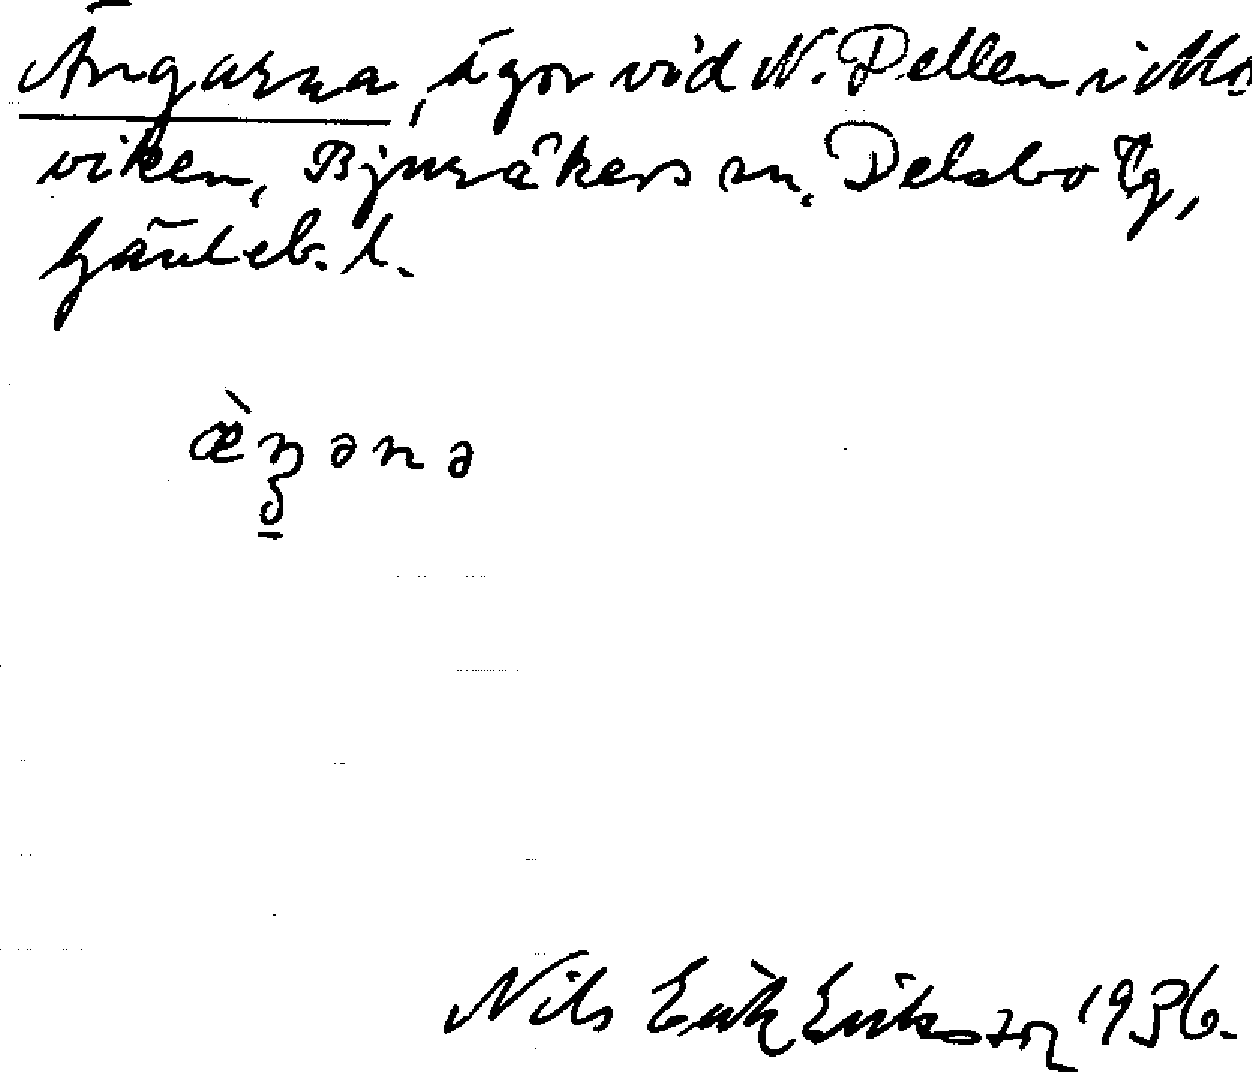 Ängarna, ägor vid N. Dellen i Mo
viken, Bjuråkers sn, Delsbo tg,
Gävleb. l.
æ̀ŋənə
Nils Erik Eriksson 1936.